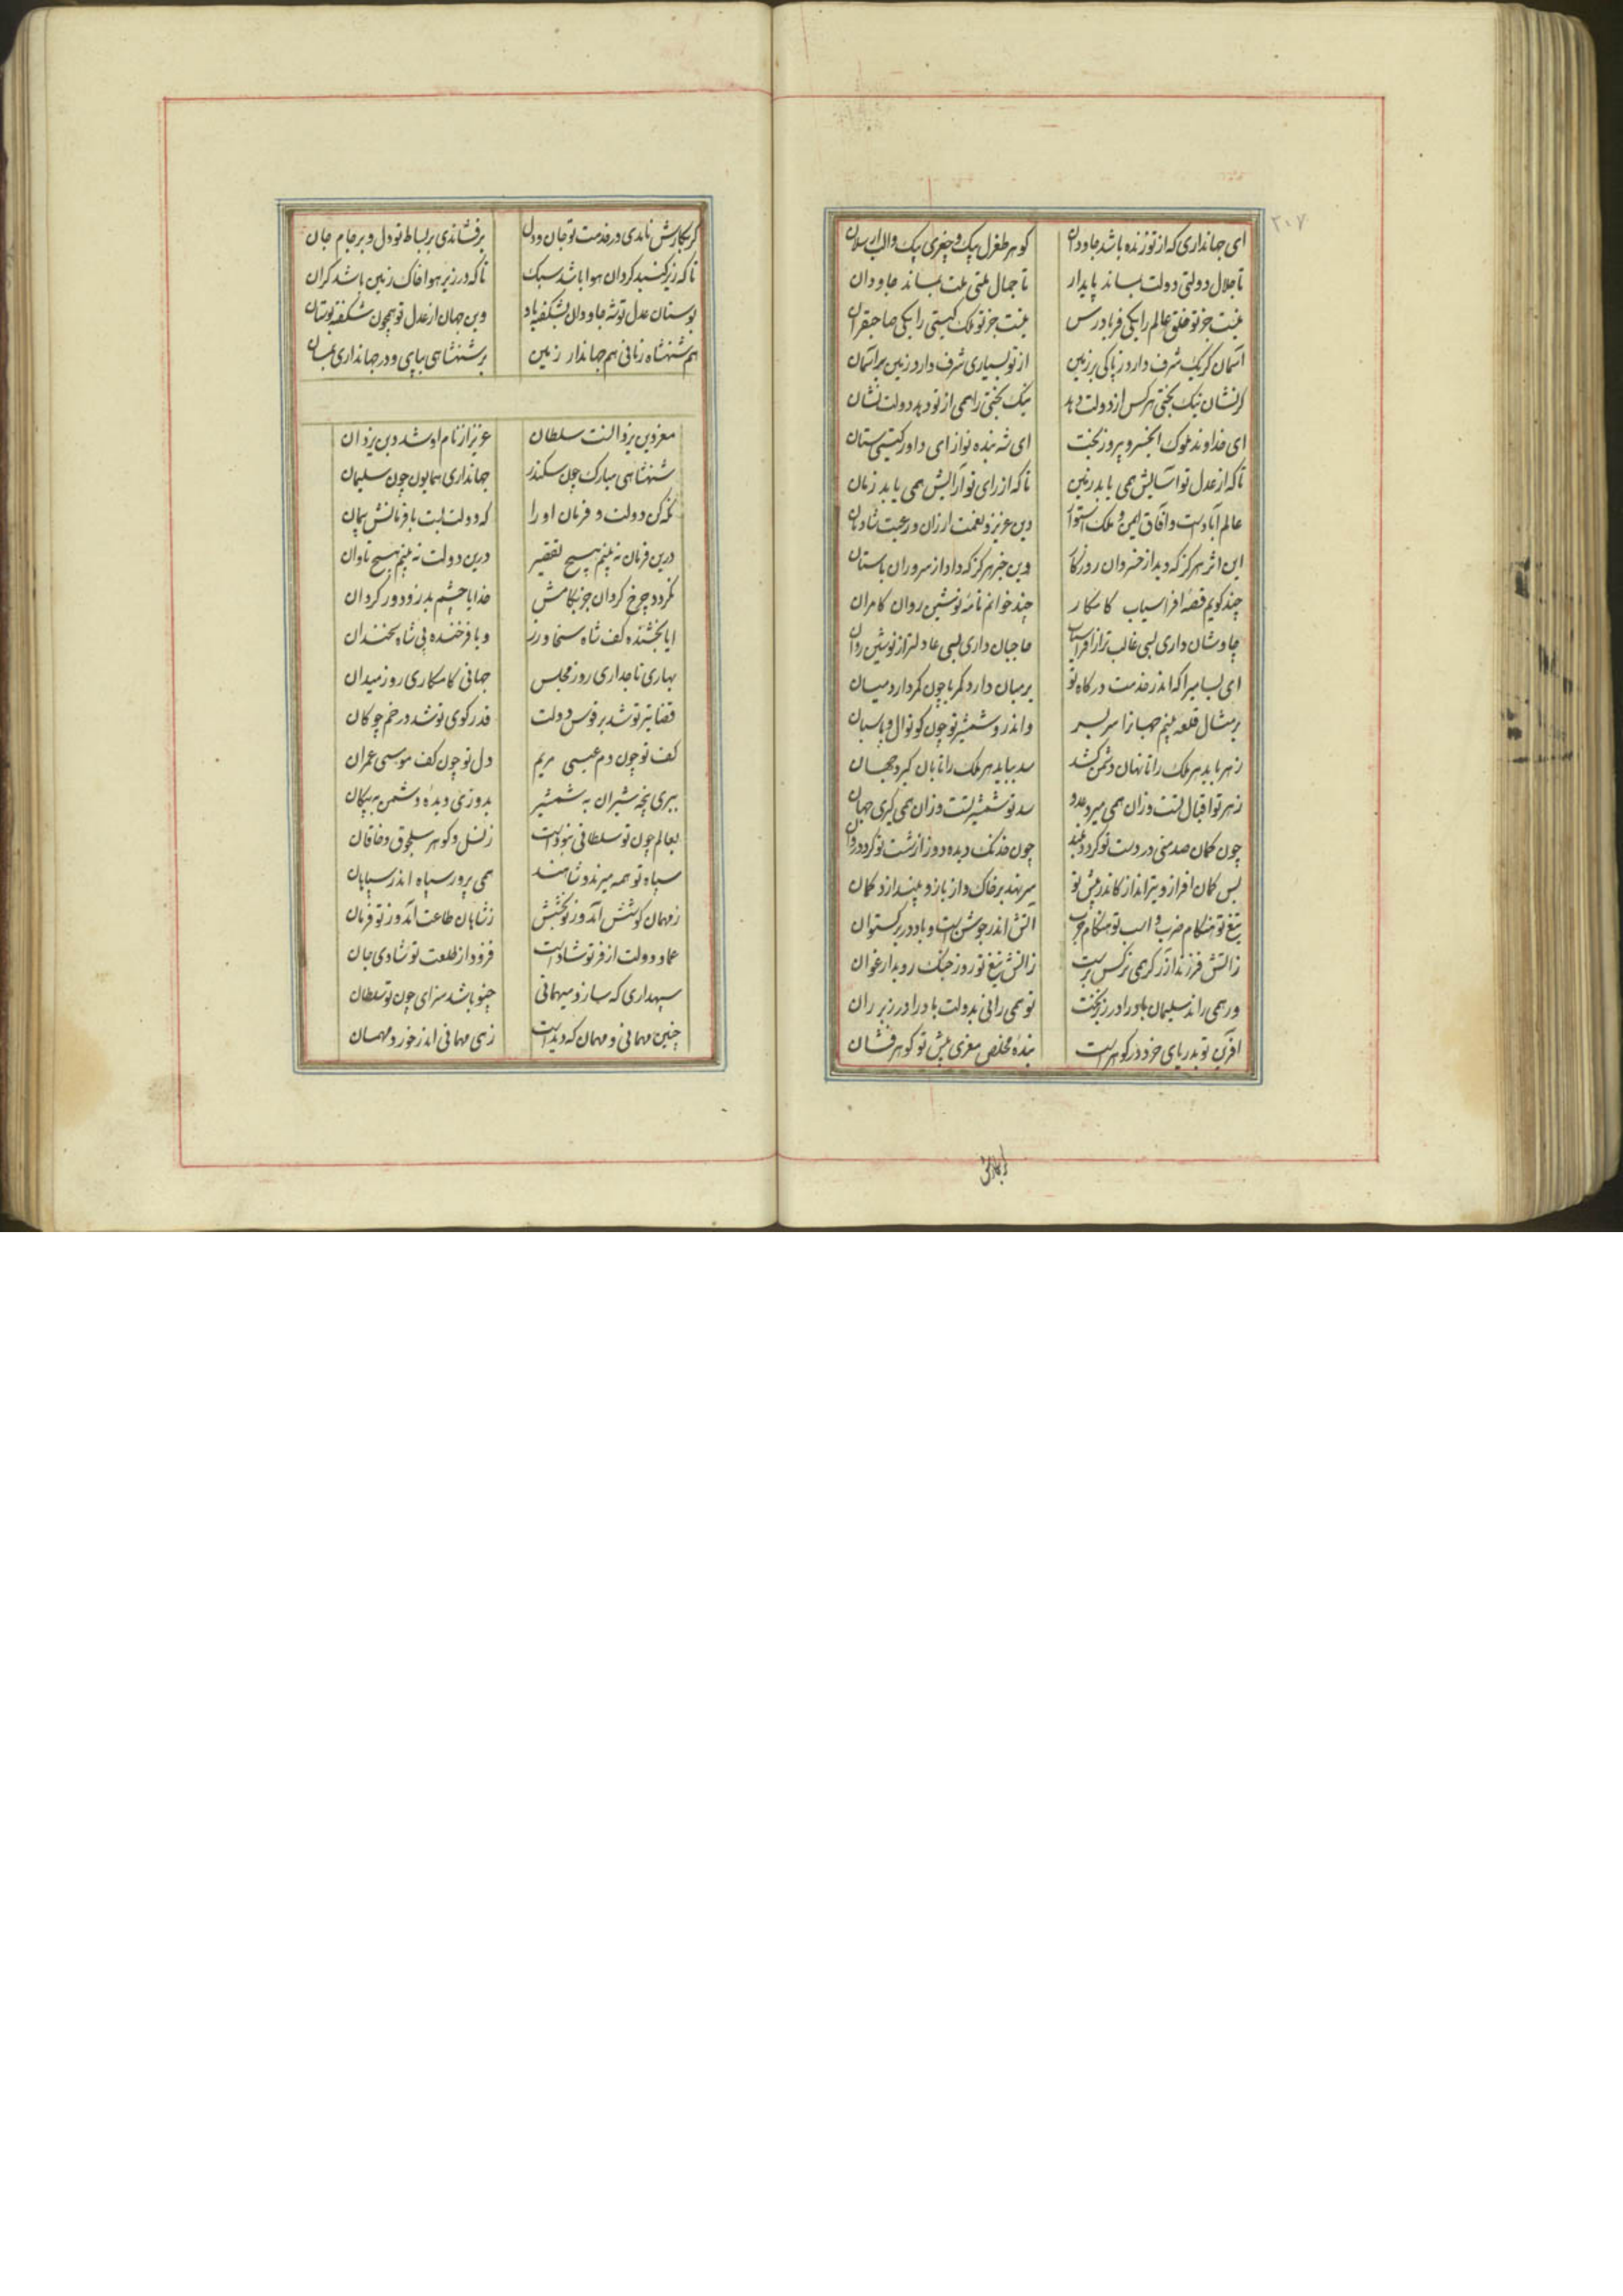 ۳۰۷
ای جهانداری که از تو زنده باشد جاودان گوهر طغرل بیک و چغری بیک و الب ارسلان
تا جلال دولتی دولت بماند پایدار تا جمال ملتی ملت بماند جاودان
نیست جز تو خلق عالم را یکی فریادرس نیست جز تو ملک گیتی را یکی صاحبقران
آسمان گر یک شرف دارد ز پاکی بر زمین از تو بسیاری شرف دارد زمین بر آسمان
گر نشان نیک بختی هر کس از دولت دهد نیک بختی را همی از تو دهد دولت نشان
ای خداوند ملوک ای خسرو پیروز بخت ای شه بنده نواز ای داور گیتی ستان
تا که از عدل تو آسایش همی یابد زمین تا که از رای تو آرایش همی یابد زمان
عالم آبادست و آفاق ایمن و ملک استوار دین عزیز و نعمت ارزان و رعیت شادمان
این اثر هرگز که دید از خسروان روزگار وین خبر هرگز که داد از سروران باستان
چند گویم قصه افراسیاب کامکار چند خوانم نامه نوشین روان کامران
چاوشان داری بسی غالب تر از افراسیاب حاجبان داری بسی عادلتر از نوشین روان
ای بسا میرا که اندر خدمت درگاه تو بر میان دارد کمر تا چون کمر دارد میان
بر مثال قلعه بینم جهان را سر بسر و اندر و شمشیر تو چون کوتوال و پاسبان
زهر باید هر ملک را تا نهان دشمن کشد سد بباید هر ملک را تا بان گیرد جهان
زهر تو اقبال تست وزان همی میرد عدو سد تو شمشیر تست وزان همی گیری جهان
چون کمان صد منی در دست تو گردد بلند چون خدنگ دیده دوز از شست تو گردد روان
بس کمان افراز و تیرانداز کاندر پیش تو سر نهد بر خاک و از بازو بیندازد کمان
تیغ تو هنگام ضرب و اسب تو هنگام حرب آتش اندر جوشن است و باد در برگستوان
ز آتش فرزند آزر گر همی نرگس برست ز آتش تیغ تو روز جنگ روید ارغوان
ور همی راند سلیمان باد را در زیر تخت تو همی رانی بدولت باد را در زیر ران
آفرین تو بدریای خرد در گوهر است بنده مخلص معزی پیش تو گوهر فشان
گر بکارش نامدی در خدمت تو جان و دل برفشاندی بر بساط تو دل و بر جام جان
تا که زیر گنبد گردان هوا باشد سبک تا که در زیر هوا خاک زمین باشد گران
بوستان عدل تو شه جاودان بشکفته باد وین جهان از عدل تو همچون شکفته بوستان
هم شهنشاه زمانی هم جهاندار زمین بر شهنشاهی بپای و در جهانداری بمان
معز دین یزدانست سلطان عزیز از نام او شد دین یزدان
شهنشاهی مبارک چون سکندر جهانداری همایون چون سلیمان
نگه کن دولت و فرمان او را که دولت بست با فرمانش پیمان
درین فرمان نه بینم هیچ تقصیر درین دولت نه بینم هیچ تاوان
نگردد چرخ گردان جز بکامش خدایا چشم بد زو دور گردان
ایا بخشنده کف شاه سخا ورز و یا فرخنده پی شاه سخندان
بهاری تاجداری روز مجلس جهانی کامکاری روز میدان
قضا تیر تو شد بر قوس دولت قدر گوی تو شد در خم چوگان
کف تو چون دم عیسی مریم دل تو چون کف موسی عمران
ببری پنجه شیران به شمشیر بدوزی دیده دشمن به پیکان
بعالم چون تو سلطانی نبودست ز نسل و گوهر سلجوق و خاقان
سپاه تو همه میرند و شاهند همی پرور سپاه اندر سپاهان
ز مهمان کوشش آمد وز تو بخشش ز شاهان طاعت آمد وز تو فرمان
عماد دولت از فر تو شادست فزود از طلعت تو شادی جان
سپهداری که سازد میهمانی چنو باشد سزای چون تو سلطان
چنین مهمانی و مهمان که دیدست زهی مهمانی اندر خورد مهمان
گر بکارش